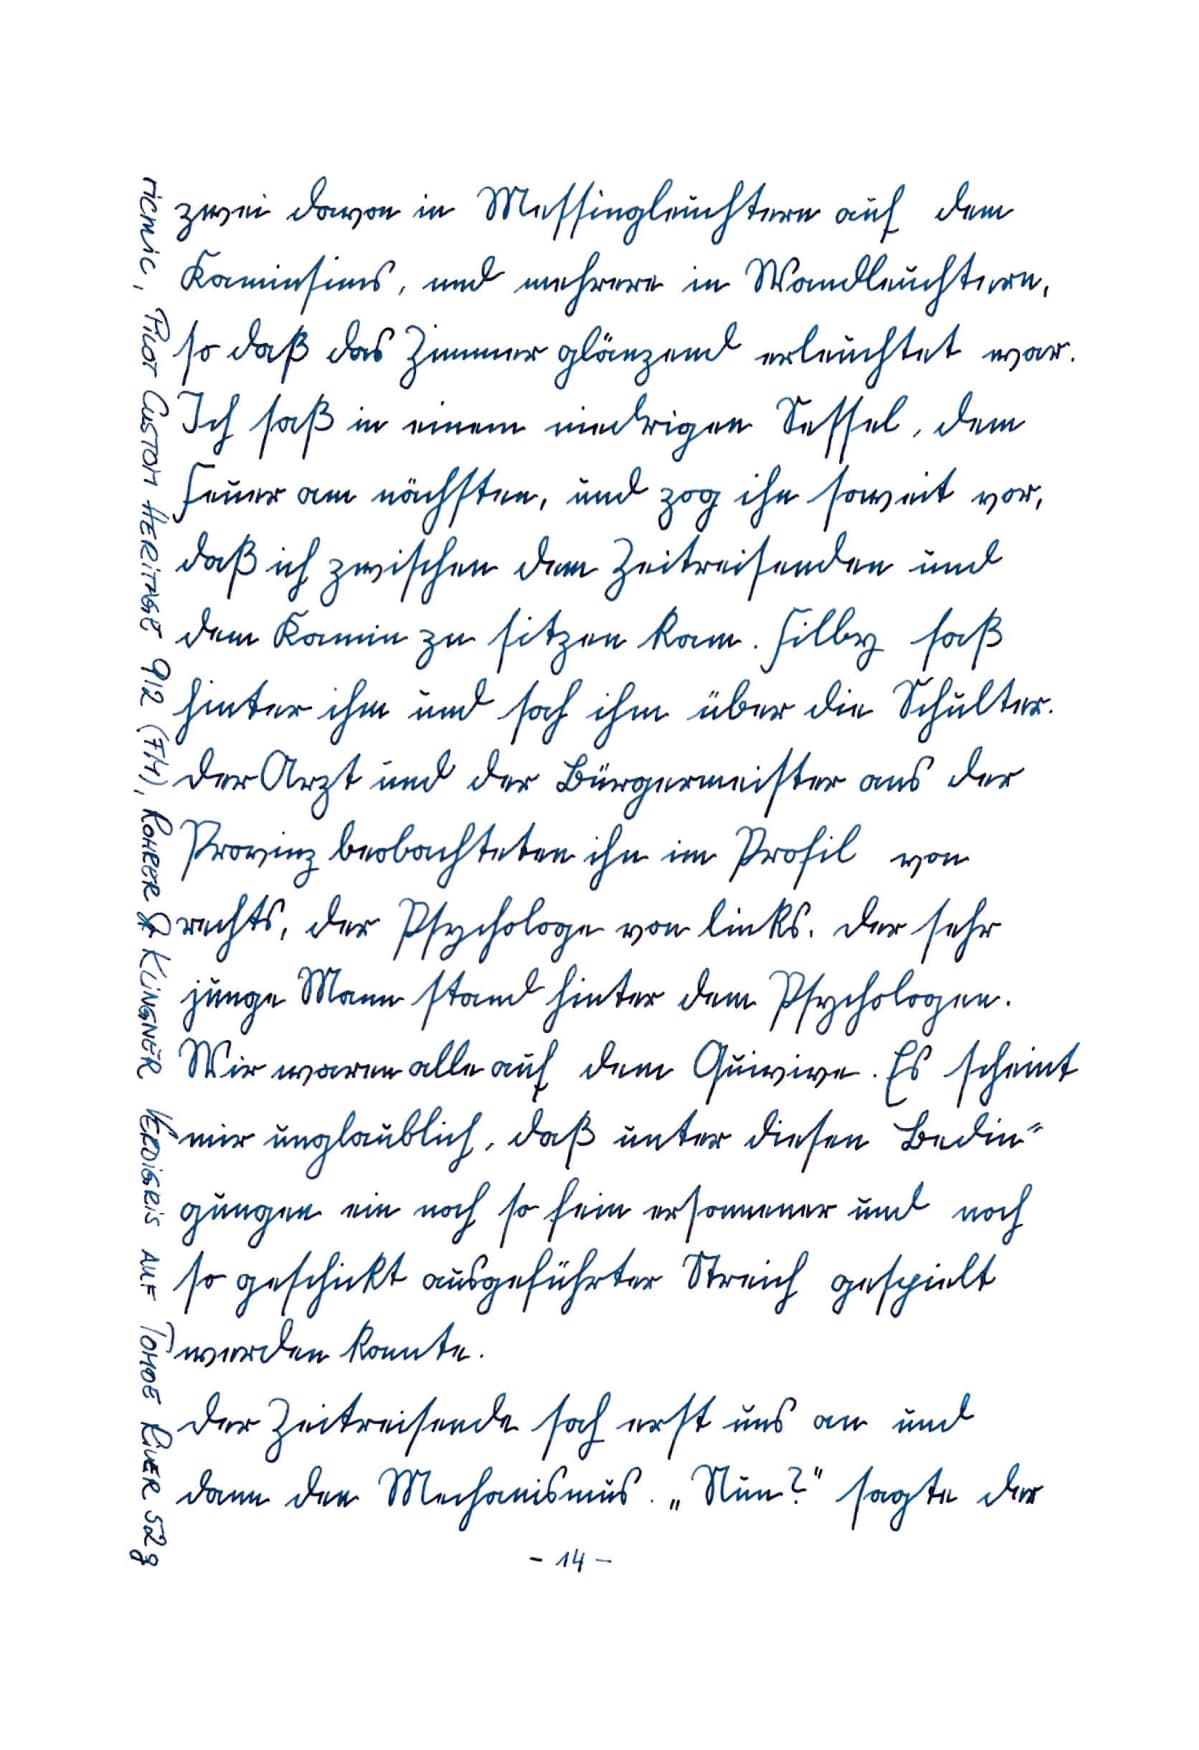 zwei davon in Messingleuchtern auf dem
Kaminsims, und mehrere in Wandleuchtern,
so daß das Zimmer glänzend erleuchtet war.
Ich saß in einem niedrigen Sessel, dem
Feuer am nächsten, und zog ihn soweit vor,
daß ich zwischen dem Zeitreisenden und
dem Kamin zu sitzen kam. Filby saß
hinter ihm und sah ihm über die Schulter.
Der Arzt und der Bürgermeister aus der
Provinz beobachteten ihn im Profil von
rechts, der Psychologe von links. Der sehr
junge Mann stand hinter dem Psychologen.
Wir waren alle auf dem Quivive. Es scheint
mir unglaublich, daß unter diesen Bedin=
gungen ein noch so fein ersonnener und noch
so geschickt ausgeführter Streich gespielt
werden konnte.
Der Zeitreisende sah erst uns an und
dann den Mechanismus. „Nun?" sagte der
- 14 -
ricmic, Pilot Custom Heritage 912 (FM), Rohrer & Klingner Verdigris auf Tomoe River 52g